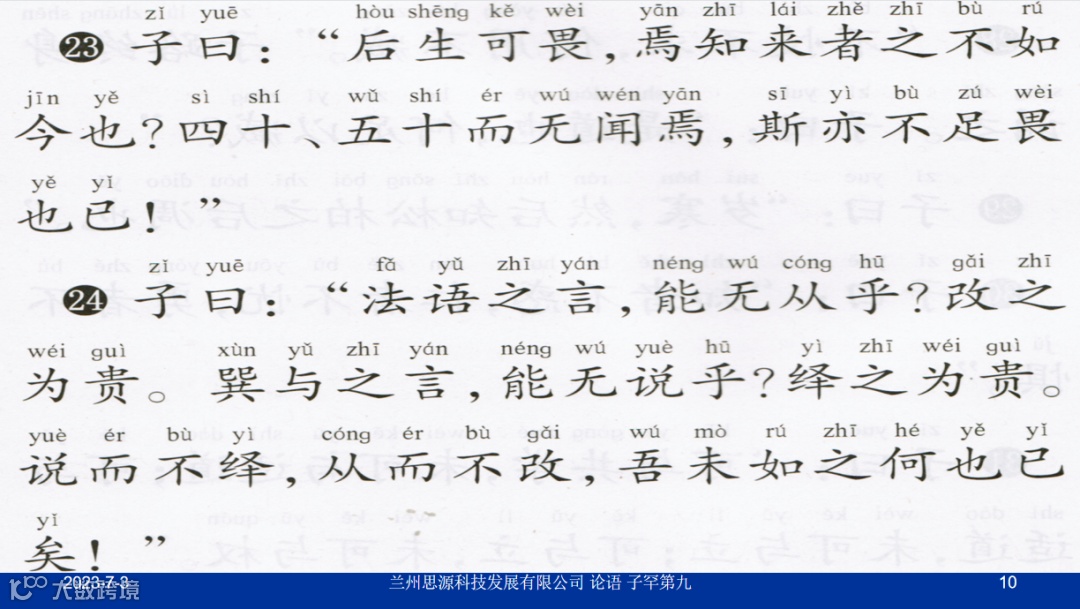 zǐ yuē hòu shēng kě wèi yān zhī lái zhě zhī bù rú
23 子曰：“后生可畏，焉知来者之不如
jīn yě sì shí wǔ shí ér wú wén yān sī yì bù zú wèi
今也？四十、五十而无闻焉，斯亦不足畏
yě yǐ
也已！”
zǐ yuē fǎ yǔ zhī yán néng wú cóng hū gǎi zhī
24 子曰：“法语之言，能无从乎？改之
wéi guì xùn yǔ zhī yán néng wú yuè hū yì zhī wéi guì
为贵。巽与之言，能无说乎？绎之为贵。
yuè ér bù yì cóng ér bù gǎi wú mò rú zhī hé yě yǐ
说而不绎，从而不改，吾末如之何也已
yǐ
矣！”
2023-7-3 兰州思源科技发展有限公司 论语 子罕第九 10
大数跨境